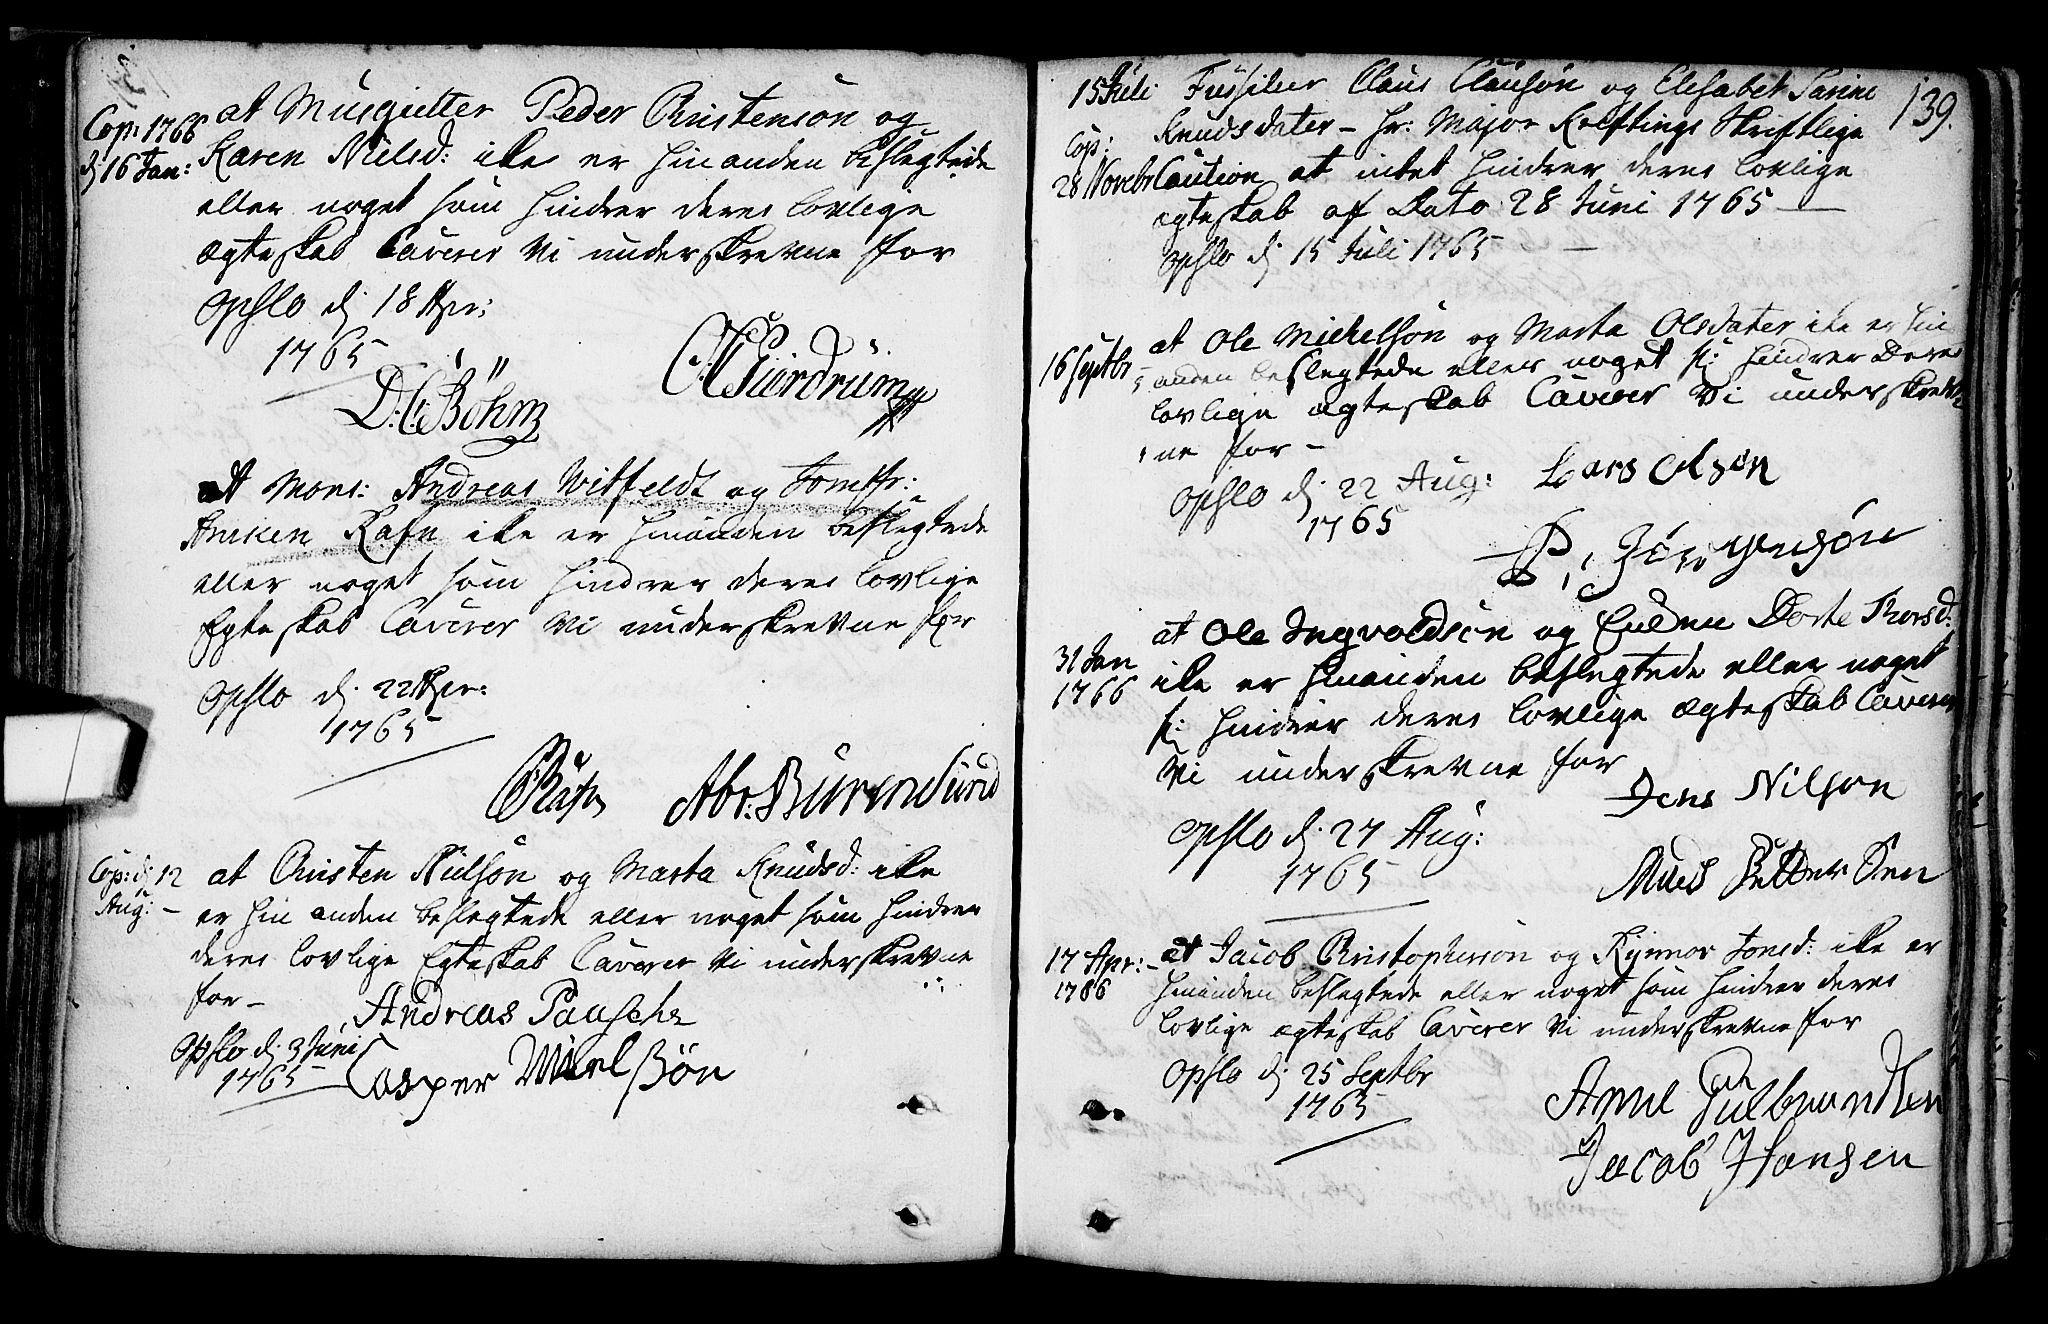 Cop: 1766
d 16 Jan:
at Musqvetter Peder Christensøn og
Karen Nielsd: ikke er hinanden beslegtede
eller noget som hindrer deres lovlige
ægteskab Caverer vi underskrevne for
Opslo d 18 Apr:
1765
D: C: Böhm
at Mons: Andreas Vitfeldt og Jomfr:
Anken Rafn ikke er hinanden beslegtede
eller noget som hindrer deres lovlige
Egteskab Caverer vi underskrevne for
Opslo d. 22 Apr:
1765
Abr: Burensund
Cop: d. 12
Aug:
at Christen Nielsøn og Marta Knudsd: ikke
er hinanden beslegtede eller noget som hindrer
deres lovlige Egteskab Caverer vi underskrevne
for –
Andreas Pausche
Opslo d. 3 Juni
1765
Casper
139.
15 Juli
Fussileer Claus Clausøn og Elisabet Sarine
Knudsdater – hr: Major Kreftings Skriftlige
Cop:
28 Novebr
Caution at intet hindrer deres lovlige
egteskab af Dato 28 Juni 1765 —
Opslo d 15 Juli 1765 –
16 Septbr
at Ole Michelsøn og Marta Olsdater ikke er hin
anden beslegtede eller noget s: hindrer deres
lovlige ægteskab Caverer vi underskrev
ne for –
Opslo d. 22 Aug:
1765
Lars Olsøn
P: Jörgensøn
31 Jan
1766
at Ole Ingvoldsøn og Dorte Thorsd:
ikke er hinanden beslegtede eller noget
s: hindrer deres lovlige ægteskab Caverer
vi underskrevne for
Jens Nilson
Opslo d. 27 Aug:
1765
Petter Sen
17 Apr:
1766
at Jacob Christophersøn og Jonsd: ikke er
hinanden beslegtede eller noget som hindrer deres
lovlige ægteskab Caverer vi underskrevne for
Opslo d. 25 Septbr
1765
Arne Gulbrandsen
Jacob Hansen